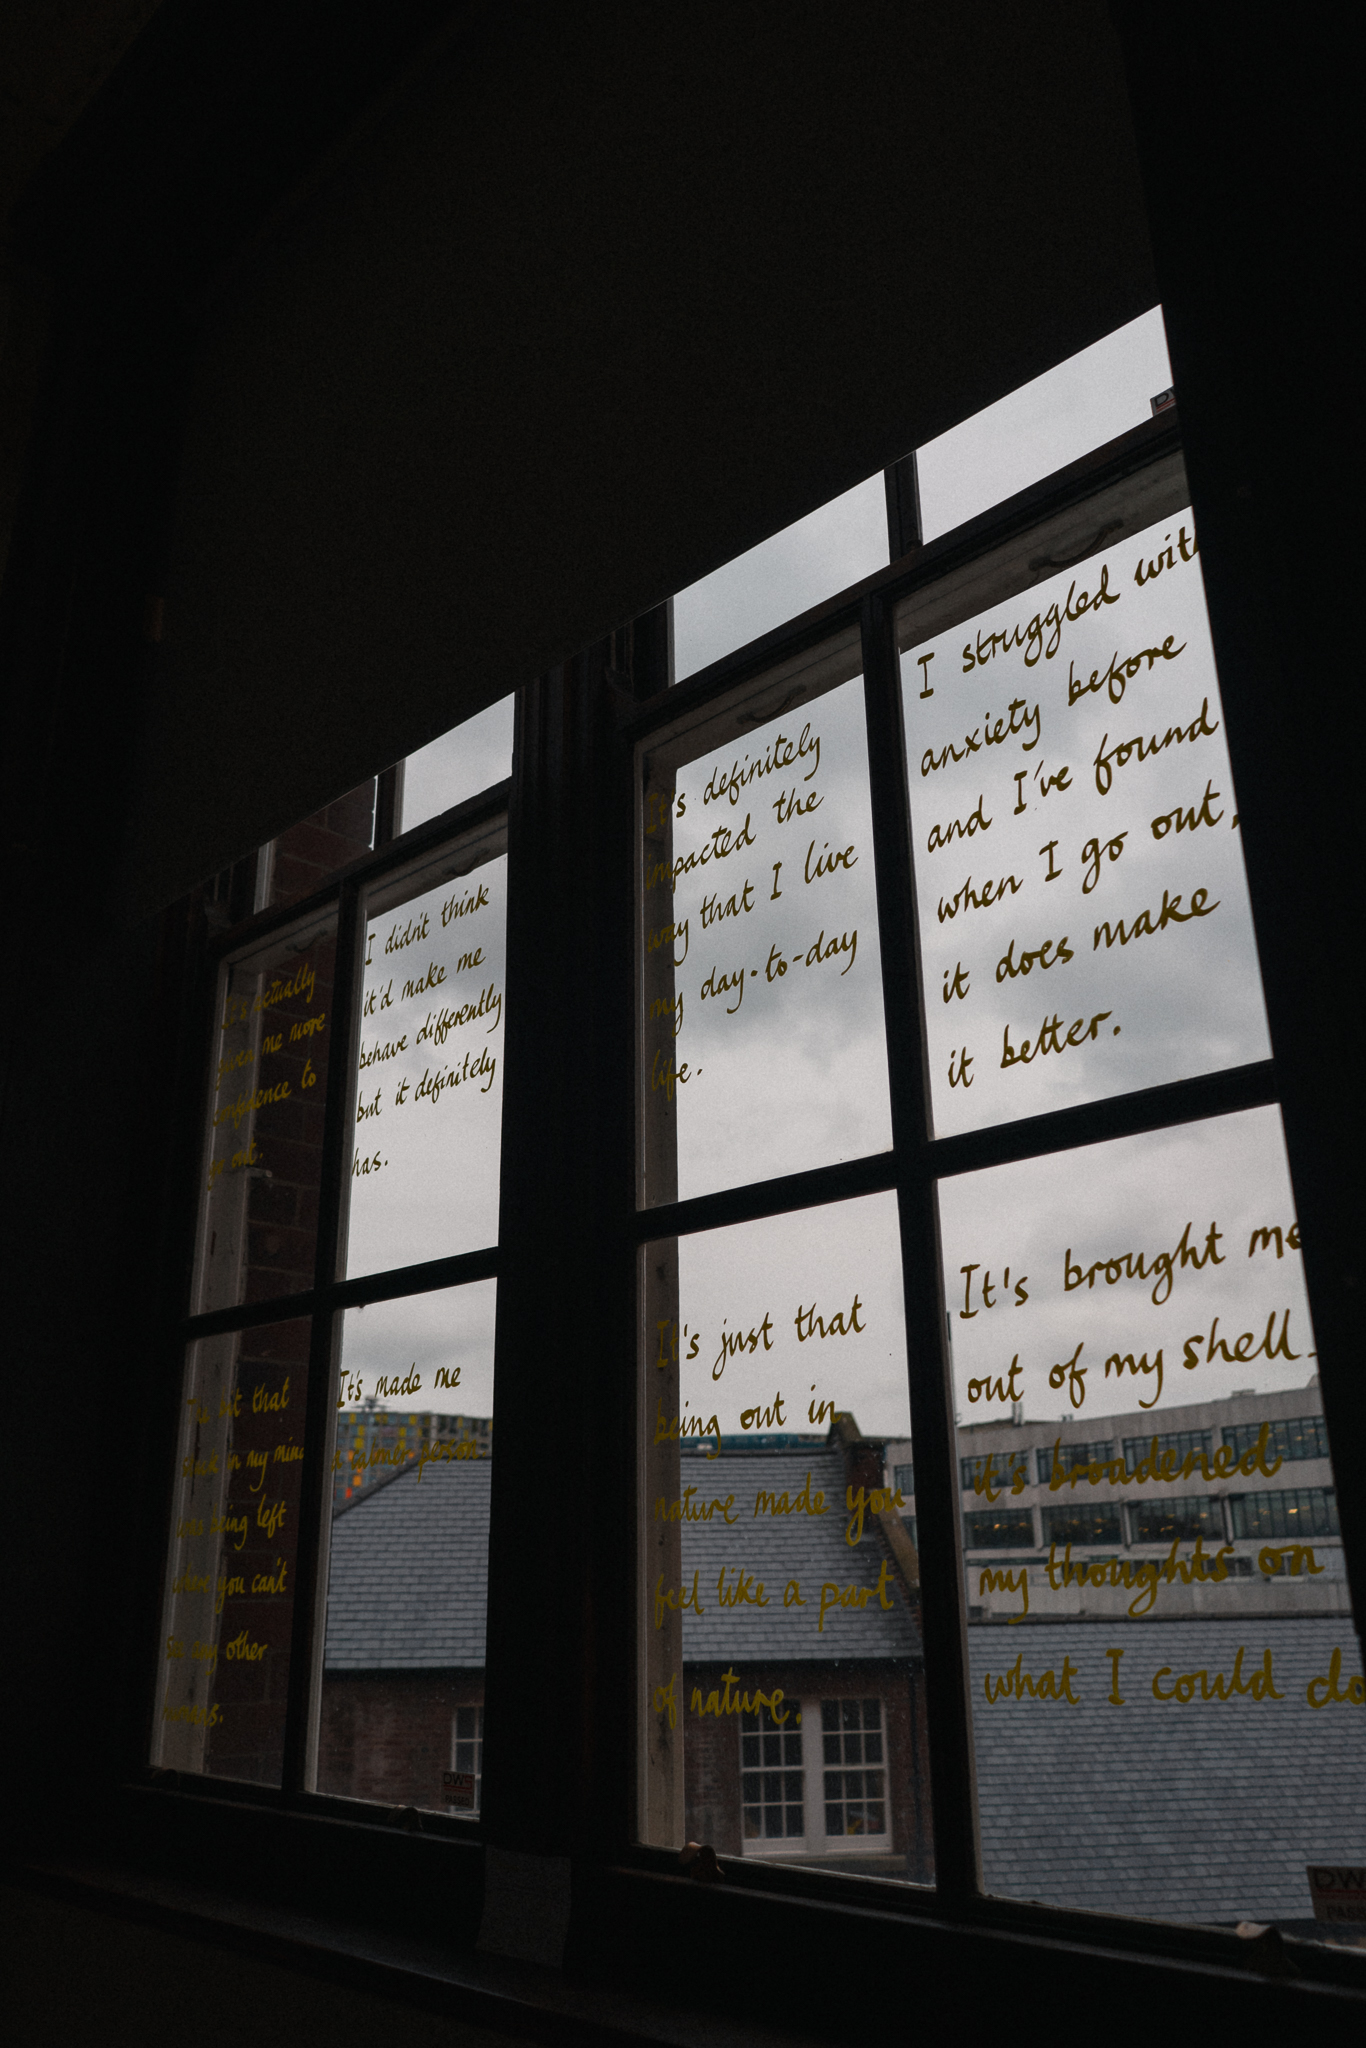 It's actually
given me more
confidence to
go out.
I didn't think
it'd make me
behave differently
but it definitely
has.
It's definitely
impacted the
way that I live
my day-to-day
life.
I struggled with
anxiety before
and I've found
when I go out,
it does make
it better.
The bit that
stuck in my mind
was being left
where you can't
see any other
It's made me
a calmer person
It's just that
being out in
nature made you
feel like a part
of nature.
It's brought me
out of my shell.
it's broadened
my thoughts on
what I could do
DW
PASS